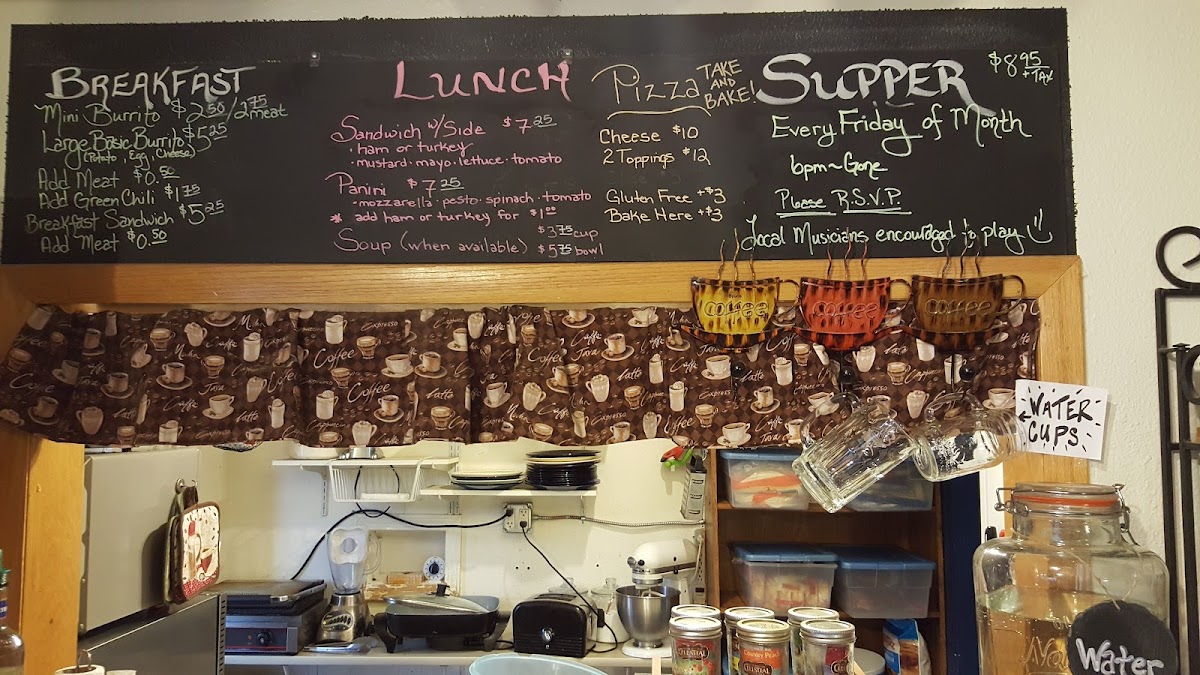 BREAKFAST
Mini Burrito $2.50/2.75 meat
Large Basic Burrito $5.25
(Potato, Egg, Cheese)
Add Meat $0.50
Add Green Chili $1.75
Breakfast Sandwich $5.25
Add Meat $0.50
LUNCH
Sandwich w/Side $7.25
• ham or turkey
• mustard • mayo • lettuce • tomato
Panini $7.25
• mozzarella • pesto • spinach • tomato
* add ham or turkey for $1.00
Soup (when available) $3.75 cup
$5.75 bowl
Pizza TAKE
AND
BAKE!
Cheese $10
2 Toppings $12
Gluten Free +$3
Bake Here +$3
SUPPER
$8.95
+ TAX
Every Friday of Month
6pm~Gone
Please R.S.V.P.
Local Musicians encouraged to play
COFFEE
COFFEE
COFFEE
Coffee
Espresso
Latte
Java
WATER
CUPS
Water